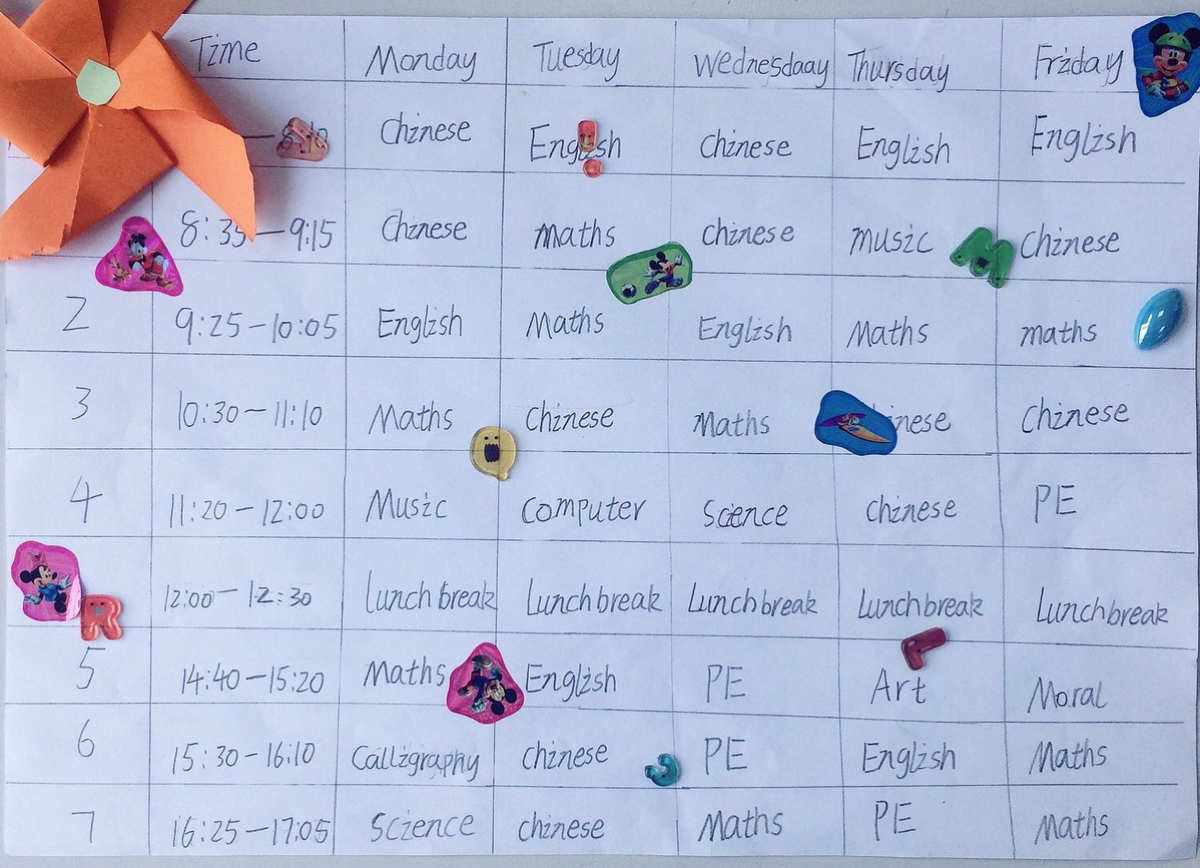 Time Monday Tuesday Wednesdaay Thursday Friday
—8:10 Chinese English chinese English English
8:35—9:15 Chinese maths chinese music Chinese
2 9:25-10:05 English Maths English Maths maths
3 10:30-11:10 Maths Chinese Maths nese Chinese
4 11:20-12:00 Music Computer Science chinese PE
12:00-12:30 Lunch break Lunch break Lunch break Lunch break Lunch break
R
5 14:40-15:20 Maths English PE Art Moral
6 15:30-16:10 Calligraphy chinese PE English Maths
7 16:25-17:05 Science chinese Maths PE Maths